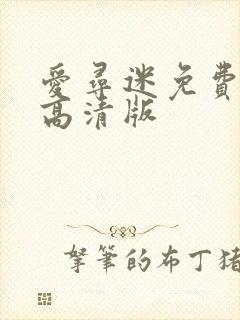 愛尋迷免費
高清版
拏筆的布丁猪